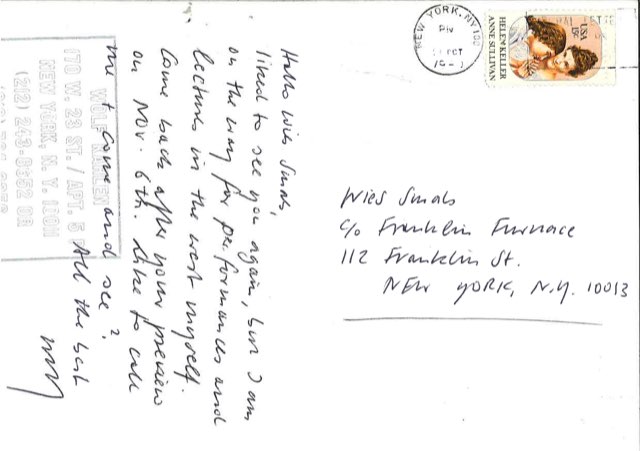 Hello Wies Smals,
liked to see you again, but I am
on the way for performances and
lectures in the west myself.
Come back after your preview
on Nov. 6th. Like to call
me + come and see?
All the best
WOLF KAHLEN
170 W. 23 ST. / APT. 5
NEW YORK, N.Y. 10011
(212) 243-0952 OR
NEW YORK, NY 100
PM
OCT
HELEN KELLER
ANNE SULLIVAN
USA
15c
Wies Smals
c/o Franklin Furnace
112 Franklin St.
NEW YORK, N.Y. 10013